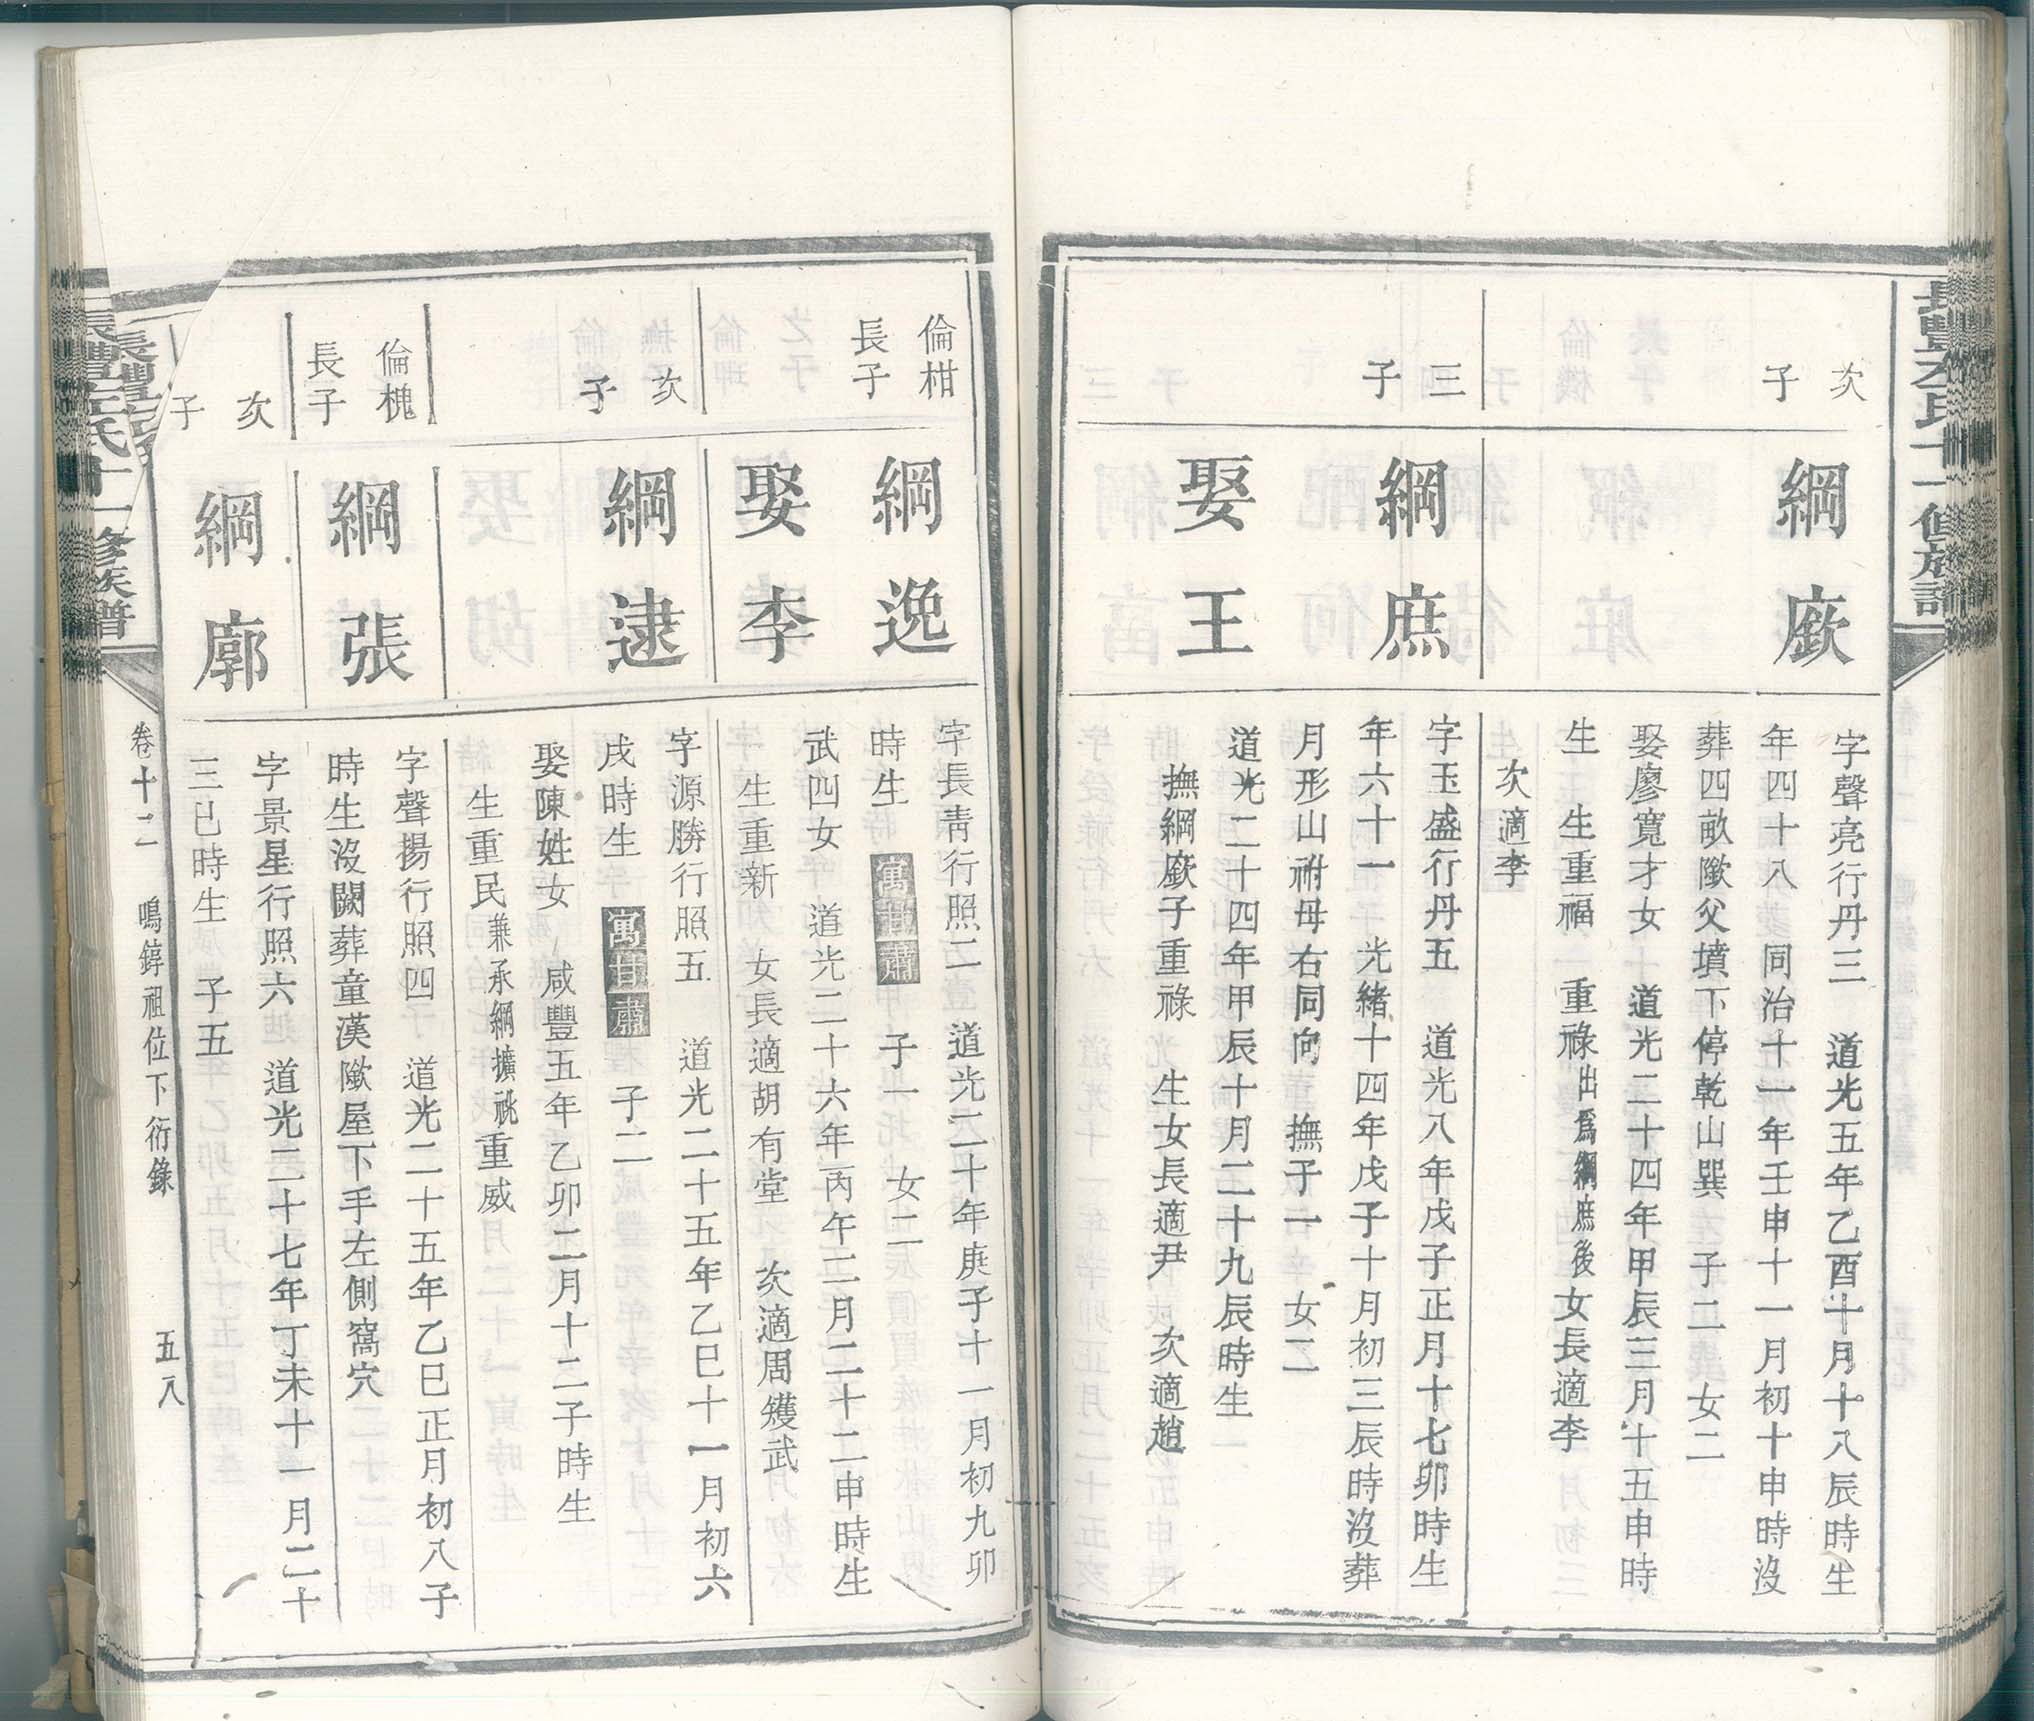 次
子
綱
廞
字聲亮行丹三　道光五年乙酉十月十八辰時生
年四十八　同治十一年壬申十一月初十申時沒
葬四畝陇父墳下停乾山巽　子二　女二
娶廖寬才女　道光二十四年甲辰三月十五申時
生　生重福　重祿出爲綱庶後女長適李
次適李
三
子
綱
庶
字玉盛行丹五　道光八年戊子正月十七卯時生
年六十一　光緒十四年戊子十月初三辰時沒葬
月形山祔母右同向　撫子一　女二
娶
王
道光二十四年甲辰十月二十九辰時生
撫綱廞子重祿　生女長適尹　次適趙
倫柑
長子
綱
逸
字長青行照二　道光二十年庚子十一月初九卯
時生　寓甘肅　子一　女二
娶
李
武四女　道光二十六年丙午三月二十二申時生
生重新　女長適胡有堂　次適周鑊武
次
子
綱
逮
字源勝行照五　道光二十五年乙巳十一月初六
戌時生　寓甘肅　子二
娶陳姓女　咸豐五年乙卯二月十二子時生
生重民兼承綱擴祧重威
倫槐
長子
綱
張
字聲揚行照四　道光二十五年乙巳正月初八子
時生沒闕葬童漢陇屋下手左側窩穴
次
子
綱
廓
字景星行照六　道光二十七年丁未十一月二十
三巳時生　子五
卷十二　鳴錞祖位下衍錄　五八
氏十一修族譜